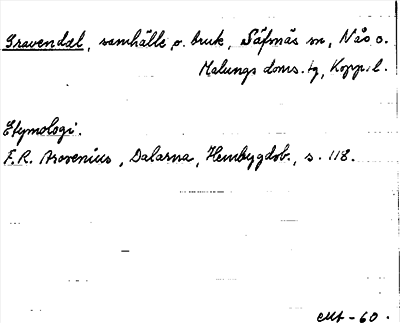 Gravendal, samhälle o. bruk, Säfsnäs sn, Nås o.
Malungs doms. tg, Kopp. l.
Etymologi.
F.R. Arosenius, Dalarna, Hembygdsb., s. 118.
-60.